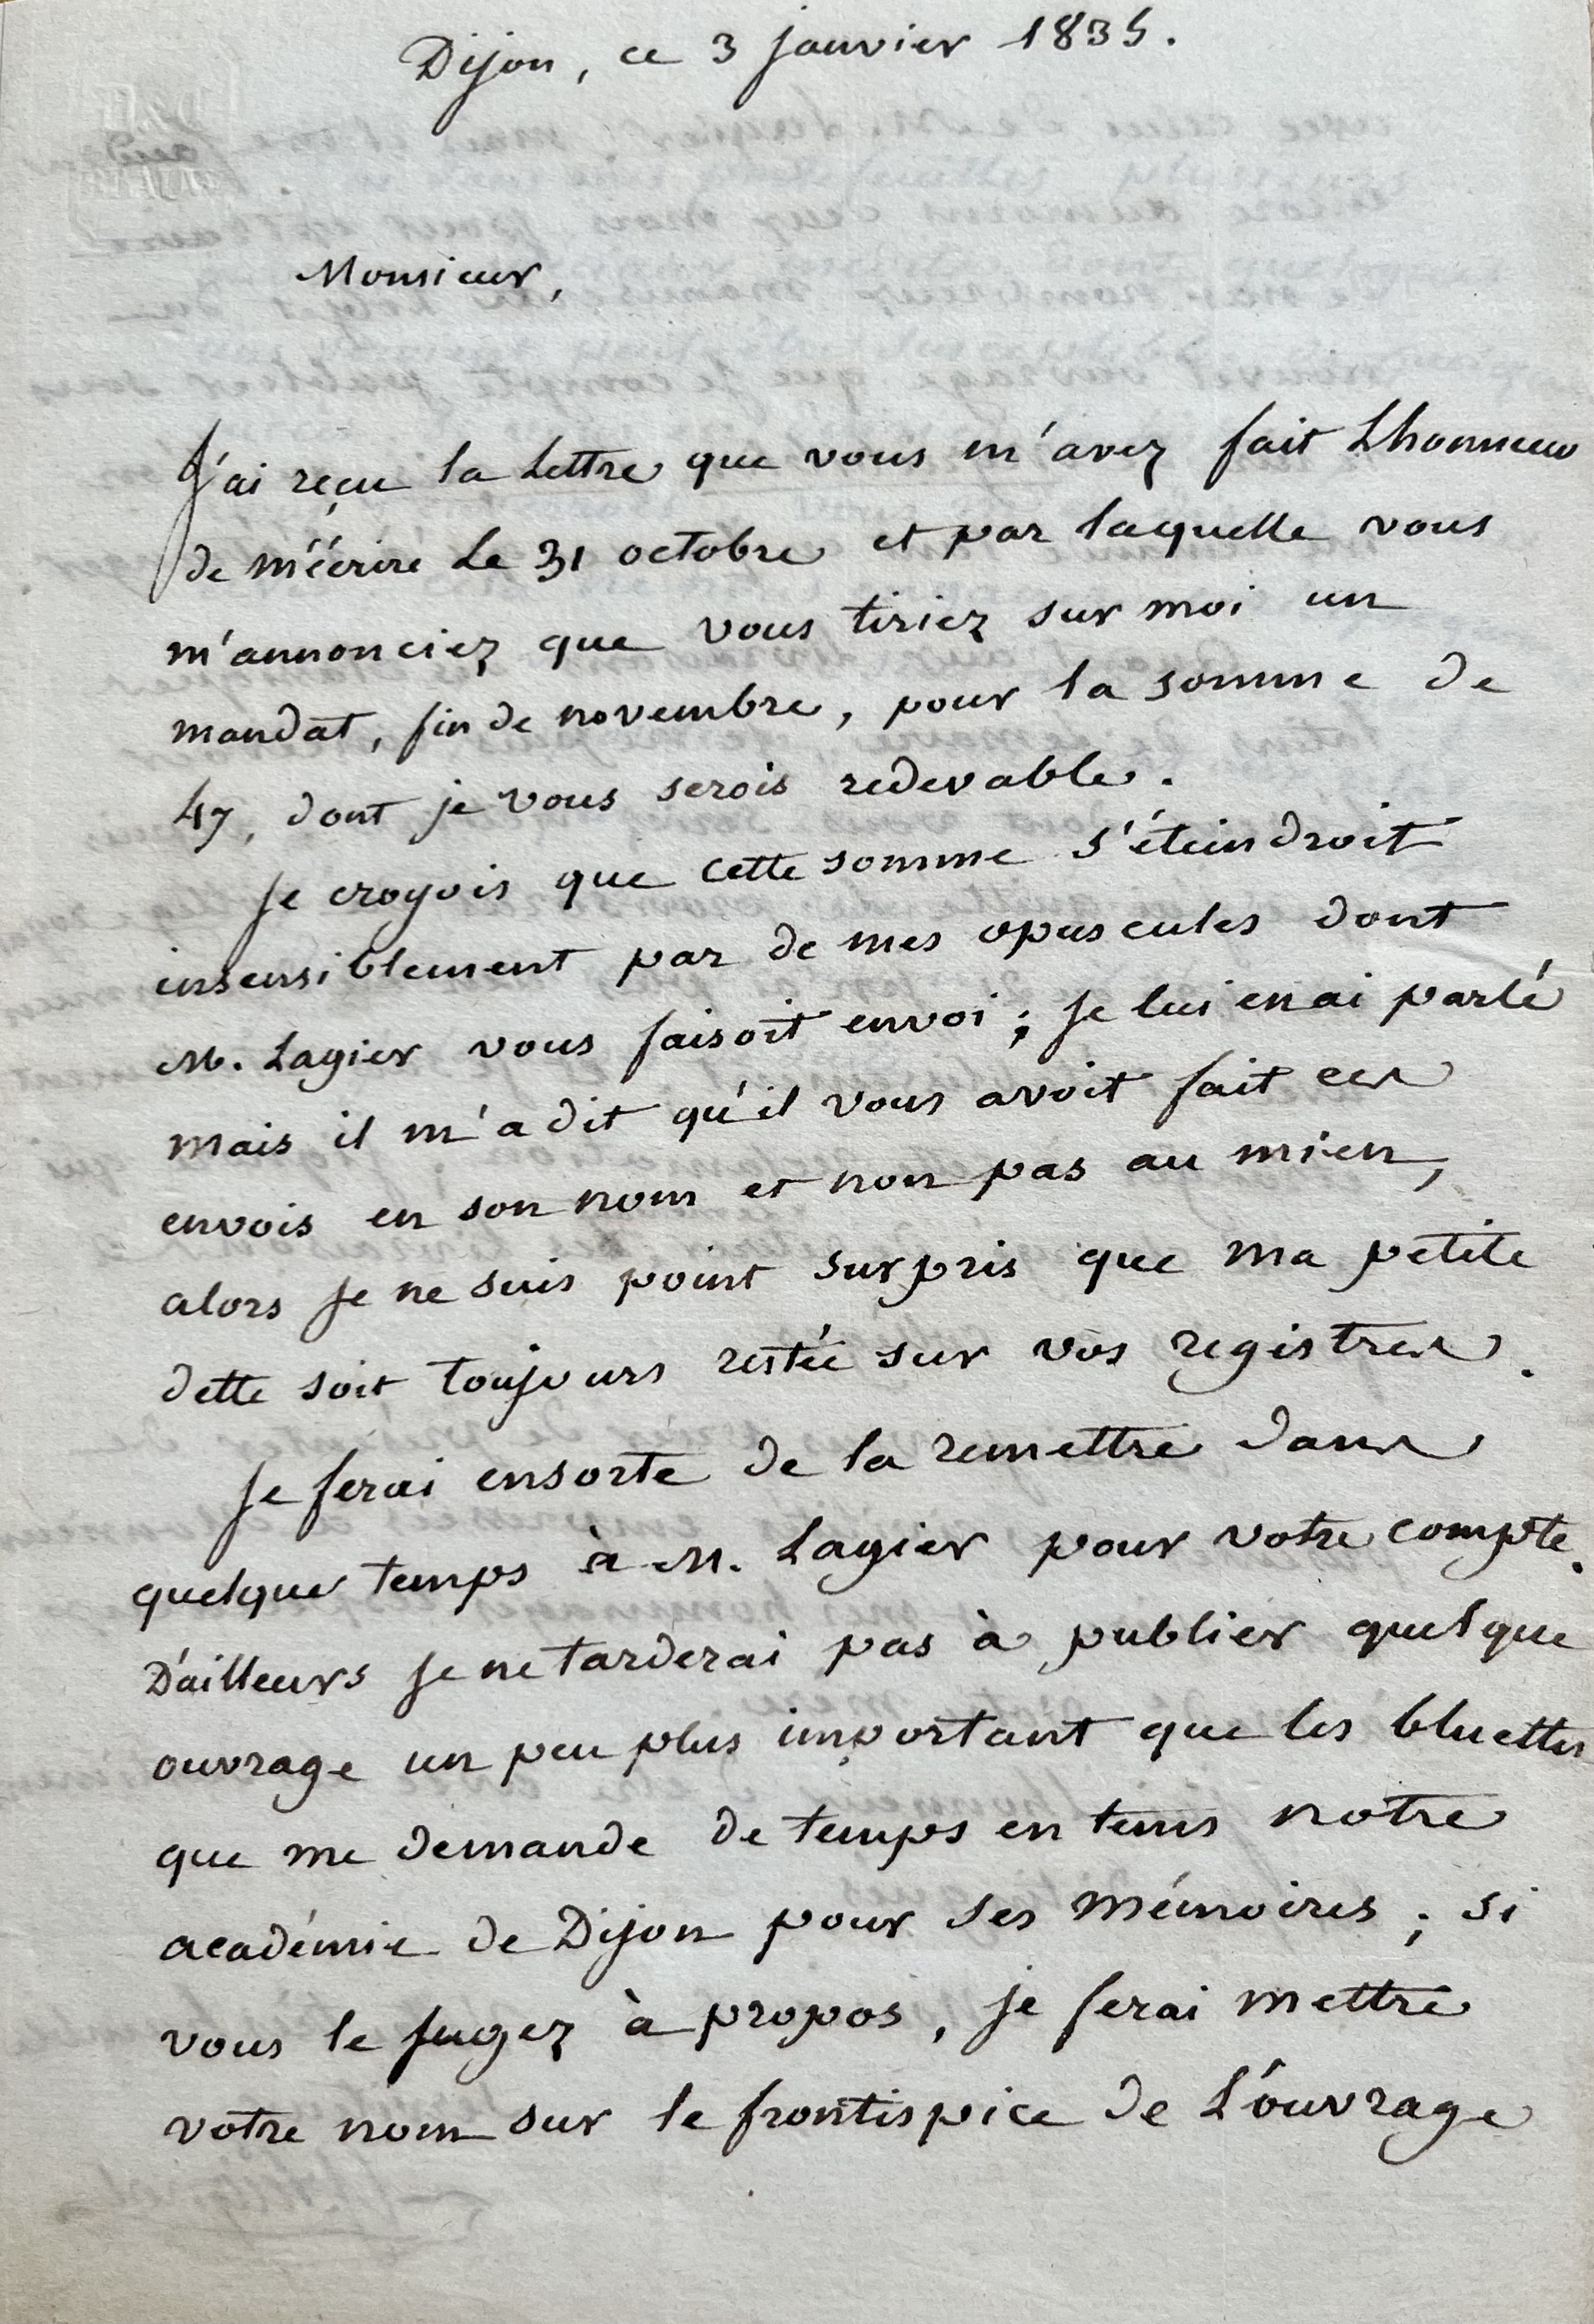 Dijon, ce 3 janvier 1835.
Monsieur,
J'ai reçu la Lettre que vous m'avez fait Lhonneur
de m'écrire Le 31 octobre et par laquelle vous
m'annonciez que vous tiriez sur moi un
mandat, fin de novembre, pour la somme de
47, dont je vous serois redevable.
Je croyois que cette somme s'éteindroit
insensiblement par de mes opuscules dont
M. Lagier vous faisoit envoi ; Je lui en ai parlé
mais il m'a dit qu'il vous avoit fait ces
envois en son nom et non pas au mien,
alors Je ne suis point surpris que ma petite
dette soit toujours restée sur vos registres.
Je ferai ensorte de la remettre dans
quelque temps à M. Lagier pour votre compte.
D'ailleurs Je ne tarderai pas à publier quelque
ouvrage un peu plus important que les bluettes
que me demande de temps en tems notre
académie de Dijon pour ses Mémoires ; si
vous le Jugez à propos, je ferai mettre
votre nom sur le frontispice de L'ouvrage